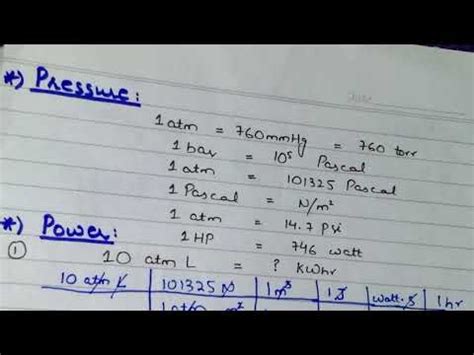 *) Pressure:
1 atm = 760mmHg = 760 torr
1 bar = 10⁵ Pascal
1 atm = 101325 Pascal
1 Pascal = N/m²
1 atm = 14.7 Psi
1 HP = 746 watt
*) Power:
① 10 atm L = ? KWhr
10 atm L | 101325 N | 1 m³ | 1 J | Watt.S | 1 hr